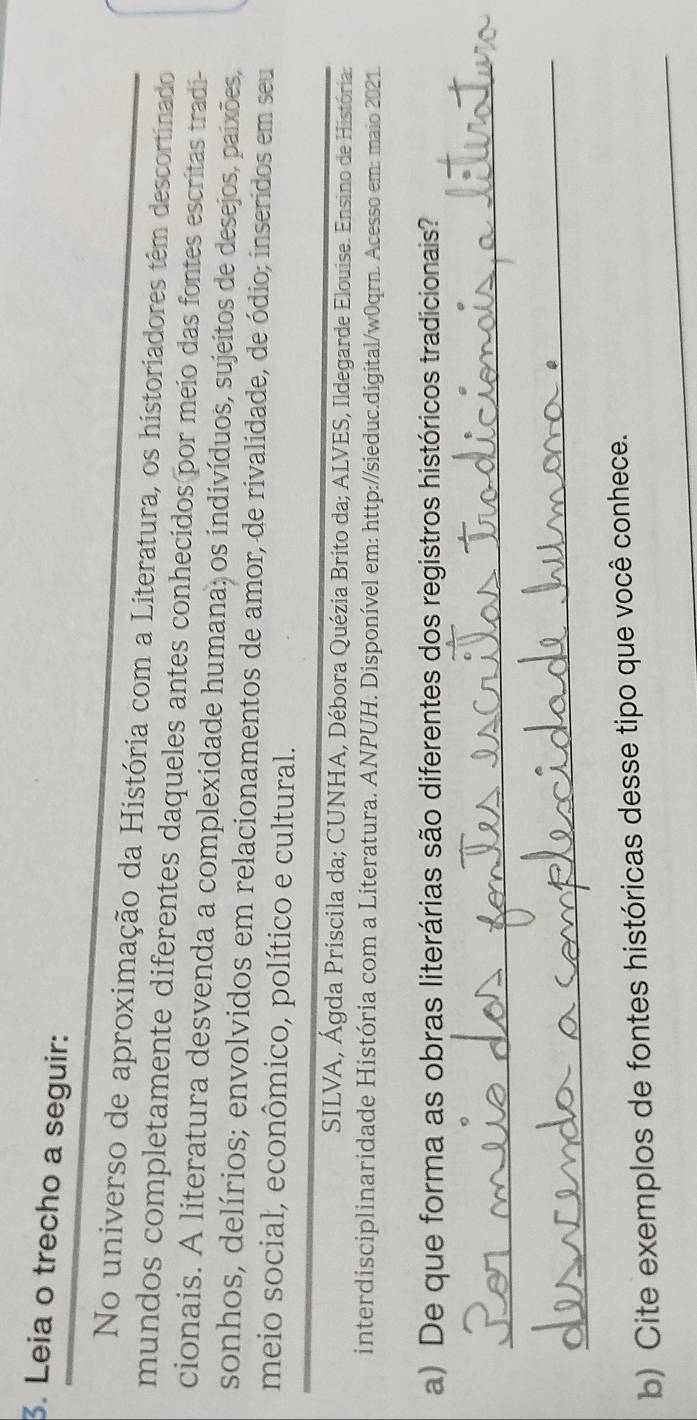 3. Leia o trecho a seguir:
No universo de aproximação da História com a Literatura, os historiadores têm descortinado
mundos completamente diferentes daqueles antes conhecidos por meio das fontes escritas tradi-
cionais. A literatura desvenda a complexidade humana; os indivíduos, sujeitos de desejos, paixões,
sonhos, delírios; envolvidos em relacionamentos de amor, de rivalidade, de ódio; inseridos em seu
meio social, econômico, político e cultural.
SILVA, Ágda Priscila da; CUNHA, Débora Quézia Brito da; ALVES, Ildegarde Elouise. Ensino de História:
interdisciplinaridade História com a Literatura. ANPUH. Disponível em: http://sieduc.digital/w0qrn. Acesso em: maio 2021.
a) De que forma as obras literárias são diferentes dos registros históricos tradicionais?
Por meio das fontes escritas tradicionais, a literatura
desvenda a complexidade humana.
b) Cite exemplos de fontes históricas desse tipo que você conhece.